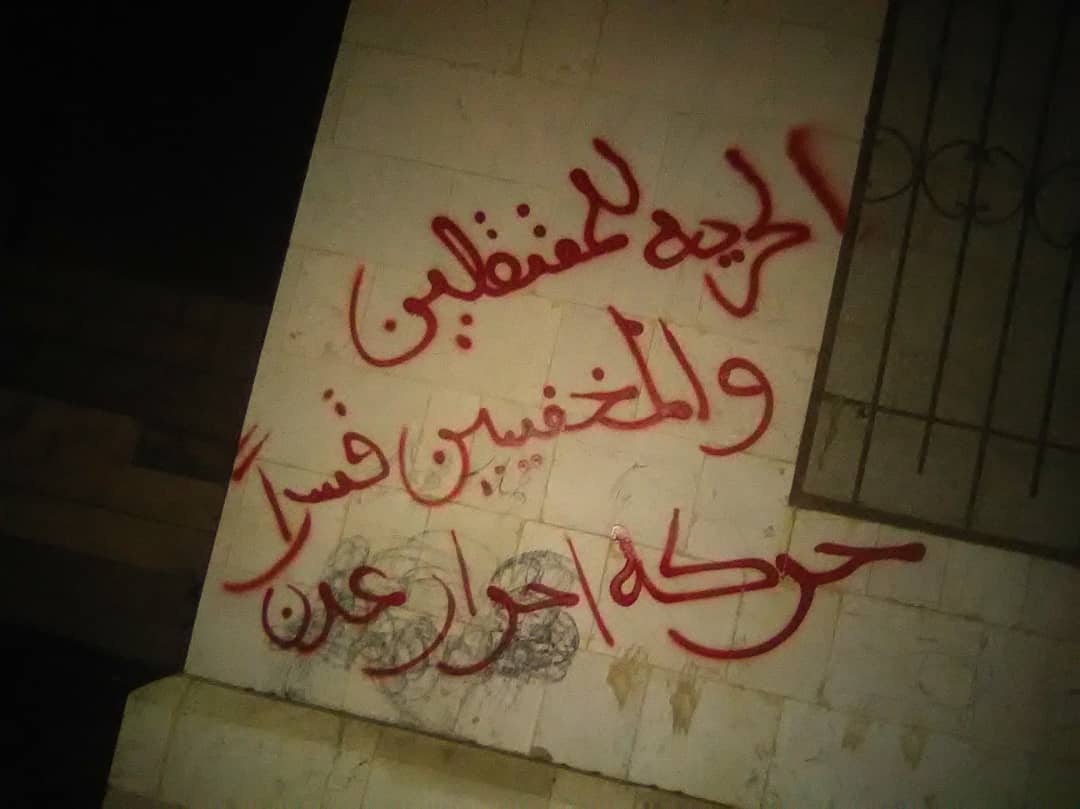 الحريه للمعتقلين
والمخفيين قسراً
حركه احرار عدن